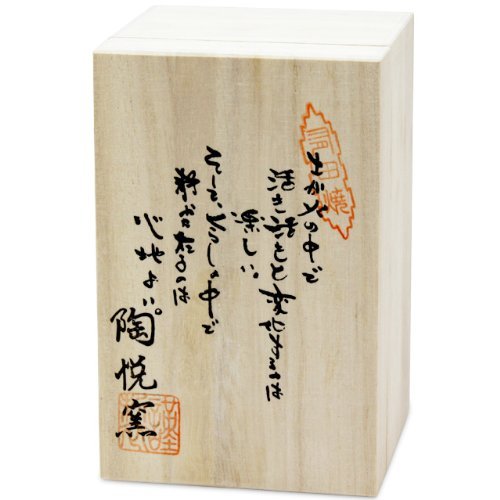 有田焼
土が火の中で
活き活きと変化するのは
楽しい。
そして、くらしの中で
料が在るのは
心地よい。
陶悦窯
謹